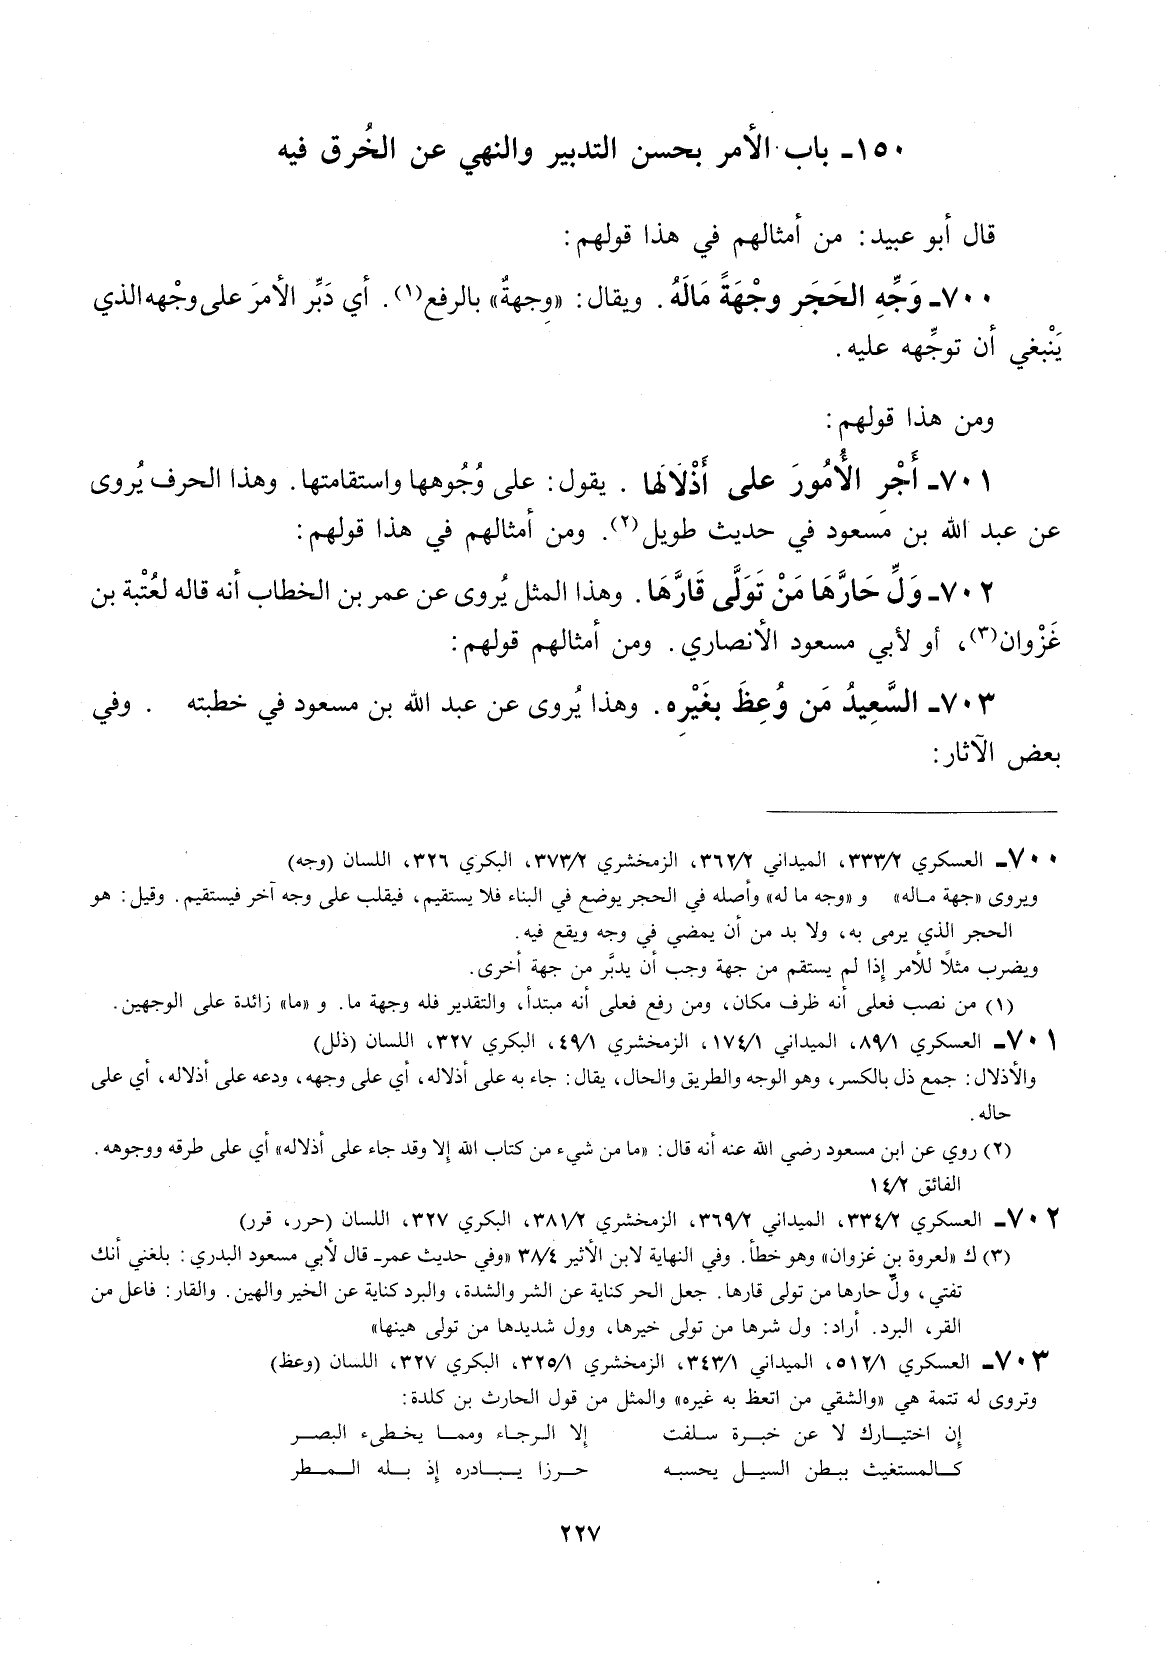 ١٥٠ـ باب الأمر بحسن التدبير والنهي عن الخُرق فيه
قال أبو عبيد: من أمثالهم في هذا قولهم:
٧٠٠ـ وَجِّهِ الحَجَر وِجْهَةً مَالَهُ. ويقال: «وِجهةٌ» بالرفع(١). أي دَبِّر الأمرَ على وجْهه الذي
يَنْبغي أن توجِّهه عليه.
ومن هذا قولهم:
٧٠١ـ أَجْرِ الأُمُورَ على أَذْلَالهَا. يقول: على وُجُوهها واستقامتها. وهذا الحرف يُروى
عن عبد الله بن مسعود في حديث طويل(٢). ومن أمثالهم في هذا قولهم:
٧٠٢ـ وَلِّ حَارَّهَا مَنْ تَوَلَّى قَارَّهَا. وهذا المثل يُروى عن عمر بن الخطاب أنه قاله لعُتْبة بن
غَزْوان(٣)، أو لأبي مسعود الأنصاري. ومن أمثالهم قولهم:
٧٠٣ـ السَّعِيدُ مَن وُعِظَ بغَيْرِه. وهذا يُروى عن عبد الله بن مسعود في خطبته . وفي
بعض الآثار:
٧٠٠ـ العسكري ٣٣٣/٢، الميداني ٣٦٢/٢، الزمخشري ٣٧٣/٢، البكري ٣٢٦، اللسان (وجه)
ويروى «جهة ماله» و «وجه ما له» وأصله في الحجر يوضع في البناء فلا يستقيم، فيقلب على وجه آخر فيستقيم. وقيل: هو
الحجر الذي يرمى به، ولا بد من أن يمضي في وجه ويقع فيه.
ويضرب مثلًا للأمر إذا لم يستقم من جهة وجب أن يدبَّر من جهة أخرى.
(١) من نصب فعلى أنه ظرف مكان، ومن رفع فعلى أنه مبتدأ، والتقدير فله وجهة ما. و «ما» زائدة على الوجهين.
٧٠١ـ العسكري ٨٩/١، الميداني ١٧٤/١، الزمخشري ٤٩/١، البكري ٣٢٧، اللسان (ذلل)
والأذلال: جمع ذل بالكسر، وهو الوجه والطريق والحال، يقال: جاء به على أذلاله، أي على وجهه، ودعه على أذلاله، أي على
حاله.
(٢) روي عن ابن مسعود رضي الله عنه أنه قال: «ما من شيء من كتاب الله إلا وقد جاء على أذلاله» أي على طرقه ووجوهه.
الفائق ١٤/٢
٧٠٢ـ العسكري ٣٣٤/٢، الميداني ٣٦٩/٢، الزمخشري ٣٨١/٢، البكري ٣٢٧، اللسان (حرر، قرر)
(٣) ك «لعروة بن غزوان» وهو خطأ. وفي النهاية لابن الأثير ٣٨/٤ «وفي حديث عمر ـ قال لأبي مسعود البدري: بلغني أنك
تفتي، ولِّ حارها من تولى قارها. جعل الحر كناية عن الشر والشدة، والبرد كناية عن الخير والهين. والقار: فاعل من
القر، البرد. أراد: ول شرها من تولى خيرها، وول شديدها من تولى هينها»
٧٠٣ـ العسكري ٥١٢/١، الميداني ٣٤٣/١، الزمخشري ٣٢٥/١، البكري ٣٢٧، اللسان (وعظ)
وتروى له تتمة هي «والشقي من اتعظ به غيره» والمثل من قول الحارث بن كلدة:
إن اختيارك لا عن خبرة سلفت إلا الرجاء ومما يخطىء البصر
كالمستغيث ببطن السيل يحسبه حرزا يبادره إذ بله المطر
٢٢٧